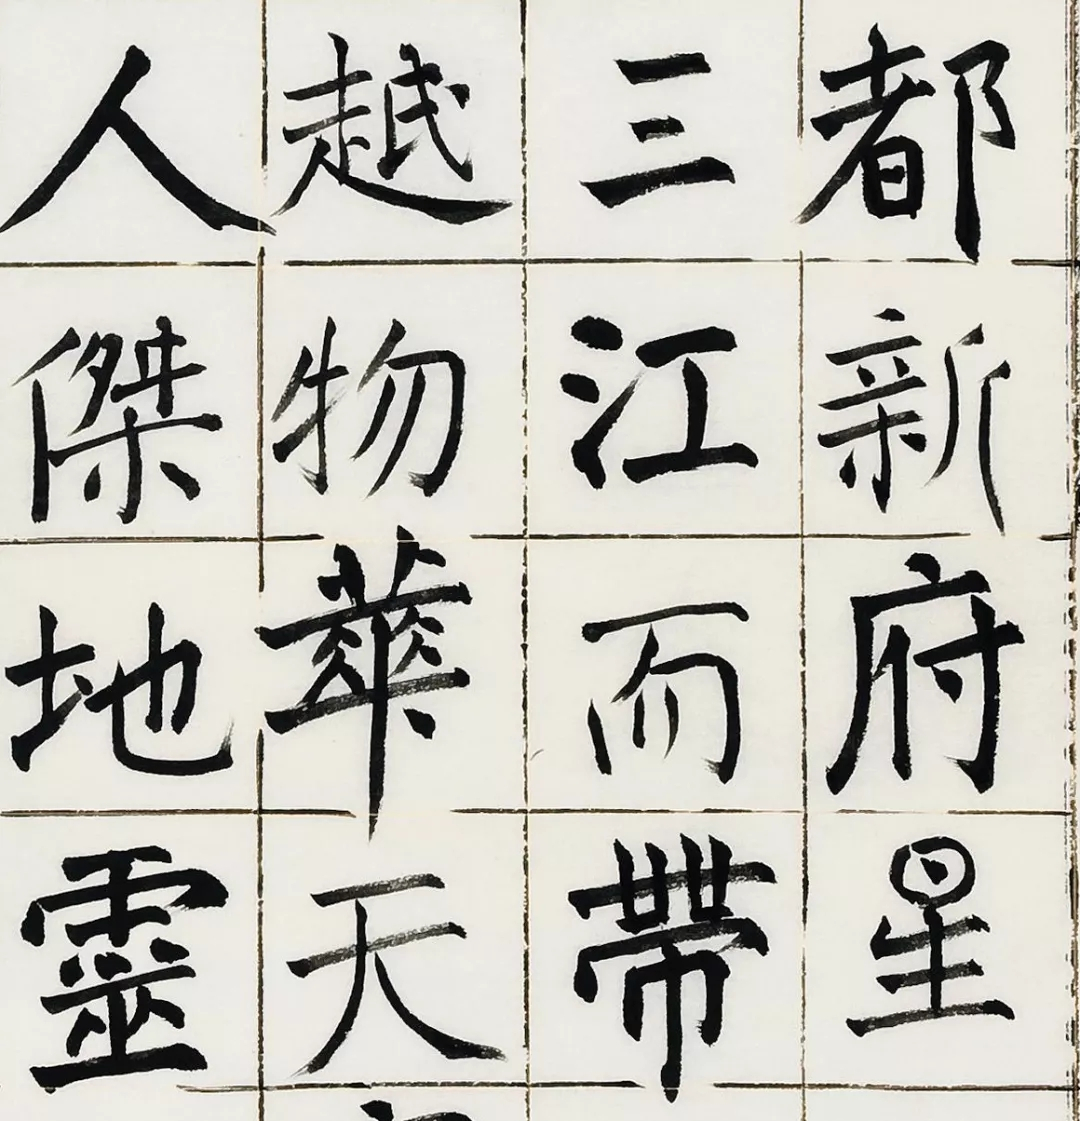 都新府星
三江而帶
越物華天
人傑地靈